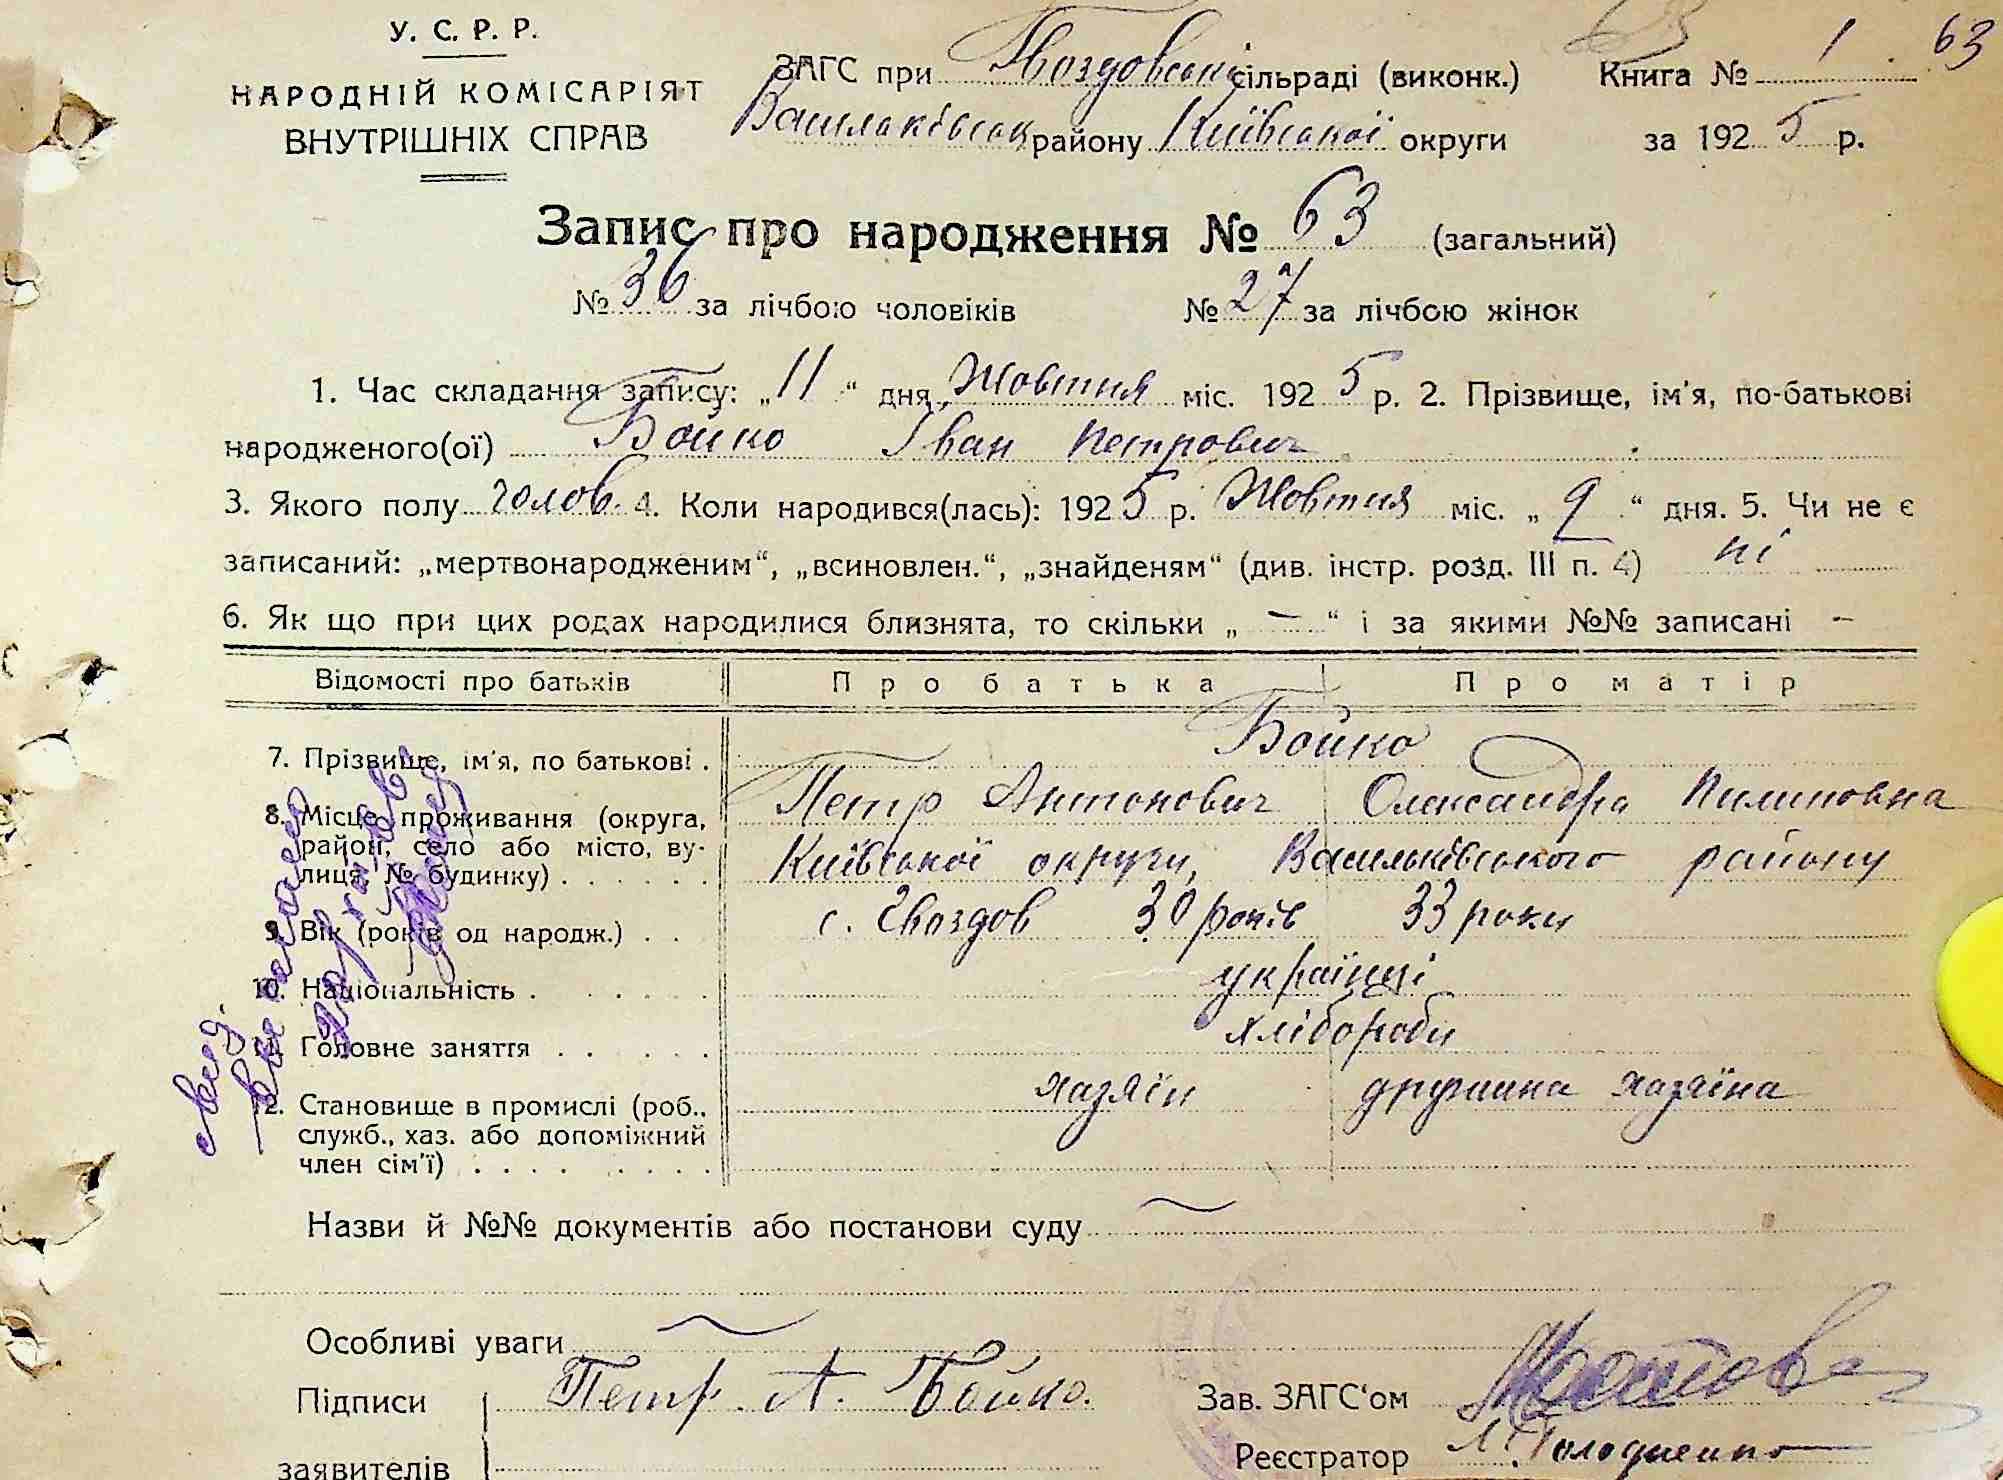 У. С. Р. Р.
НАРОДНІЙ КОМІСАРІЯТ
ВНУТРІШНІХ СПРАВ
ЗАГС при Гвоздовські сільраді (виконк.)
Васильківськ району Київської округи
Книга № 1 63
за 1925 р.
Запис про народження № 63 (загальний)
№ 36 за лічбою чоловіків № 27 за лічбою жінок
1. Час складання запису: „11“ дня Жовтня міс. 1925 р. 2. Прізвище, ім'я, по-батькові
народженого(ої) Бойко Іван Петрович
3. Якого полу чолов. 4. Коли народився(лась): 1925 р. Жовтня міс. „9“ дня. 5. Чи не є
записаний: „мертвонародженим“, „всиновлен.“, „знайденям“ (див. інстр. розд. III п. 4) ні
6. Як що при цих родах народилися близнята, то скільки „ — “ і за якими №№ записані -
Відомості про батьків Про батька Про матір
7. Прізвище, ім'я, по батькові . Бойко
Петр Антонович Олександра Пилиповна
8. Місце проживання (округа,
район, село або місто, ву-
лиця, № будинку) . . . . . . Київської округи, Васильківського району
9. Вік (років од народж.) . . с. Гвоздов 30 років 33 роки
10. Національність . . . . . українці
11. Головне заняття . . . . хлібороби
12. Становище в промислі (роб.,
служб., хаз. або допоміжний
член сім'ї) . . . . . . . . хазяїн дружина хазяїна
Назви й №№ документів або постанови суду
Особливі уваги
Підписи Петр. А. Бойко.
заявителів
Зав. ЗАГС‘ом
Реєстратор